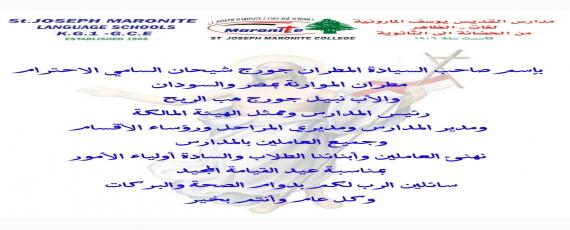 St.JOSEPH MARONITE
LANGUAGE SCHOOLS
K.G.1 -G.C.E
ST JOSEPH MARONITE LANGUAGE SCHOOLS
Maronite
ST JOSEPH MARONITE COLLEGE
مدارس القديس يوسف المارونية
لغات - الظاهر
من الحضانة الى الثانوية
بإسم صاحب السيادة المطران جورج شيحان السامي الاحترام
مطران الموارنة بمصر والسودان
والأب نبيل جورج هب الريح
رئيس المدارس وممثل الهيئة المالكة
ومدير المدارس ومديري المراحل ورؤساء الأقسام
وجميع العاملين بالمدارس
نهنئ العاملين وأبنائنا الطلاب والسادة أولياء الأمور
بمناسبة عيد القيامة المجيد
سائلين الرب لكم بدوام الصحة والبركات
وكل عام وأنتم بخير